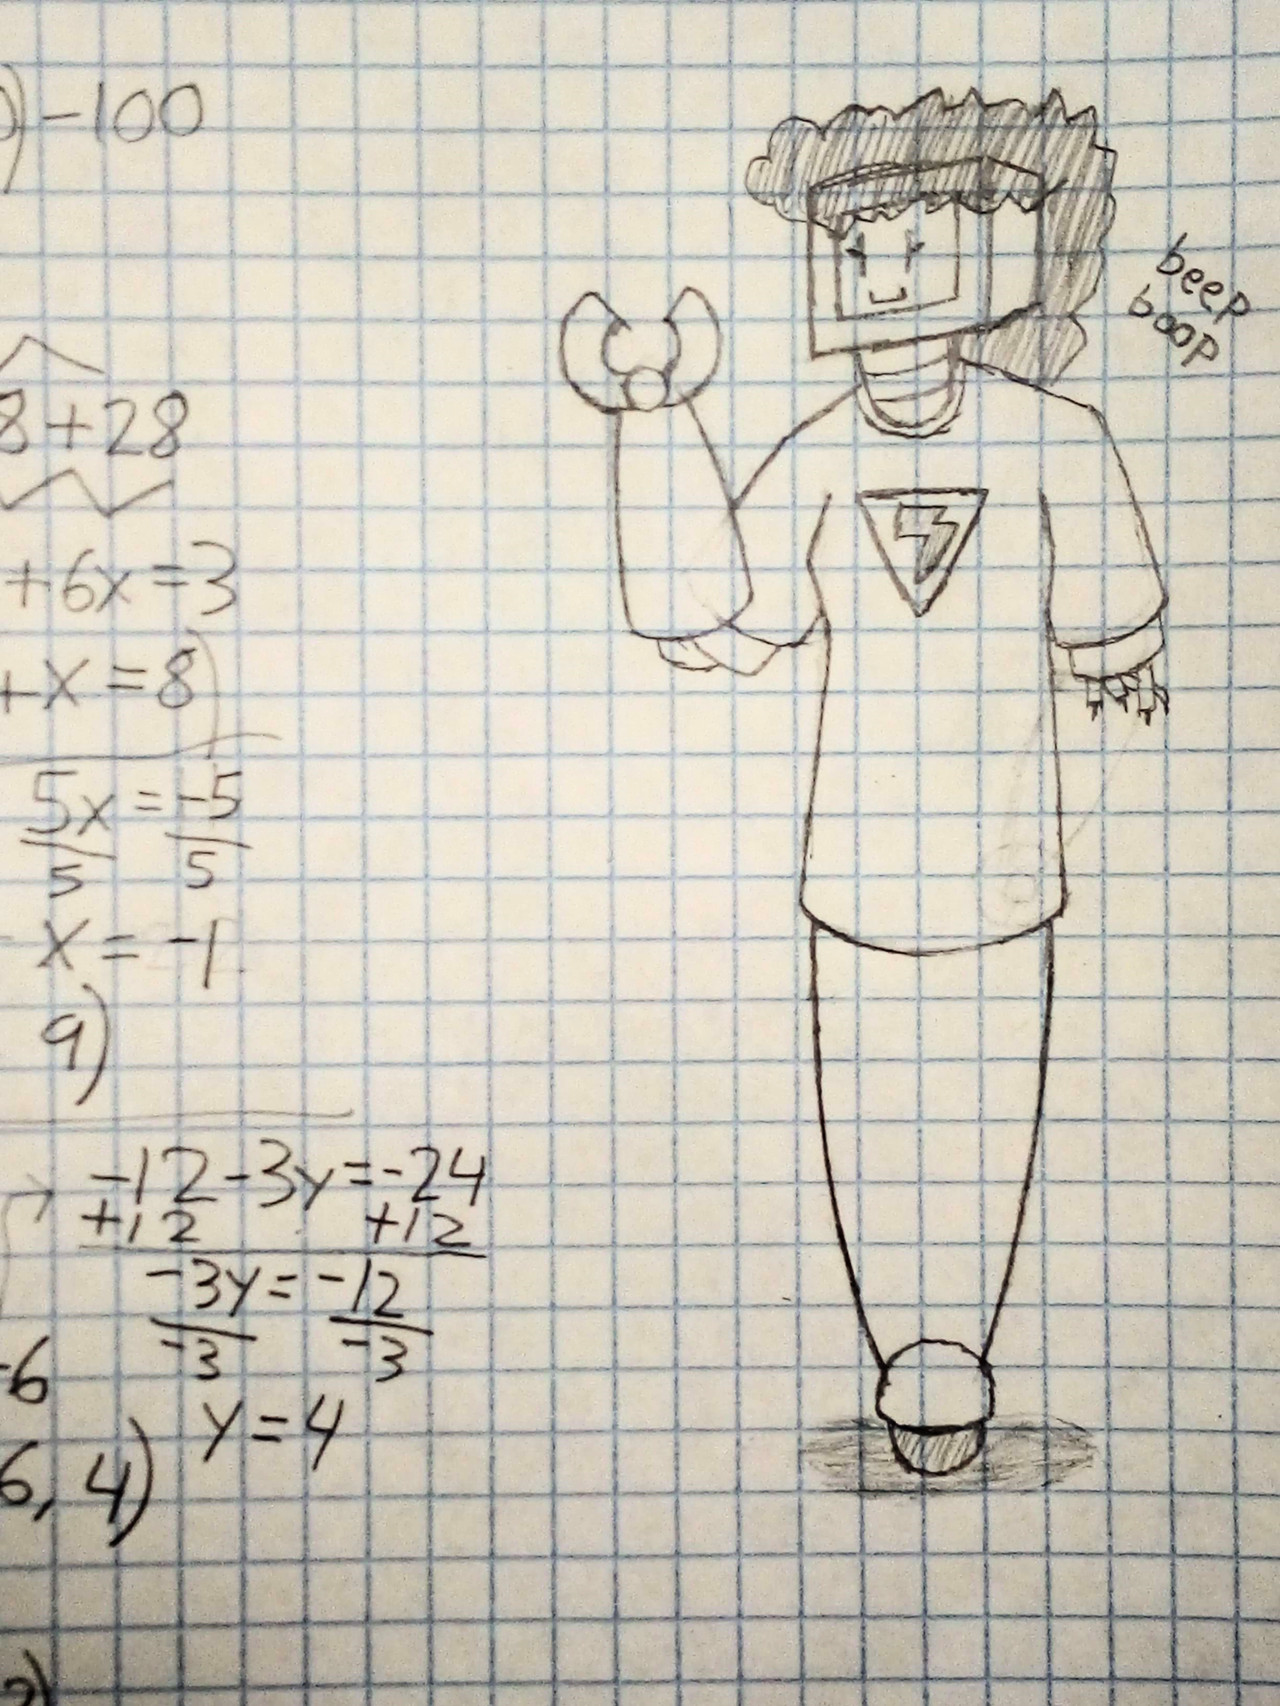 ) -100
8+28
+6x=3
+x=8
5x = -5
5 5
x = -1
9)
-12-3y=-24
+12 +12
-3y = -12
-3 -3
y = 4
-6
6, 4)
beep
boop